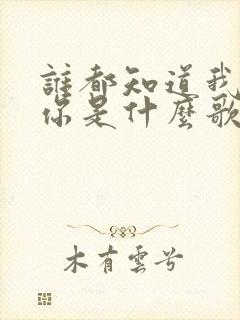 誰都知道我
你是什麼歌
木有雲兮